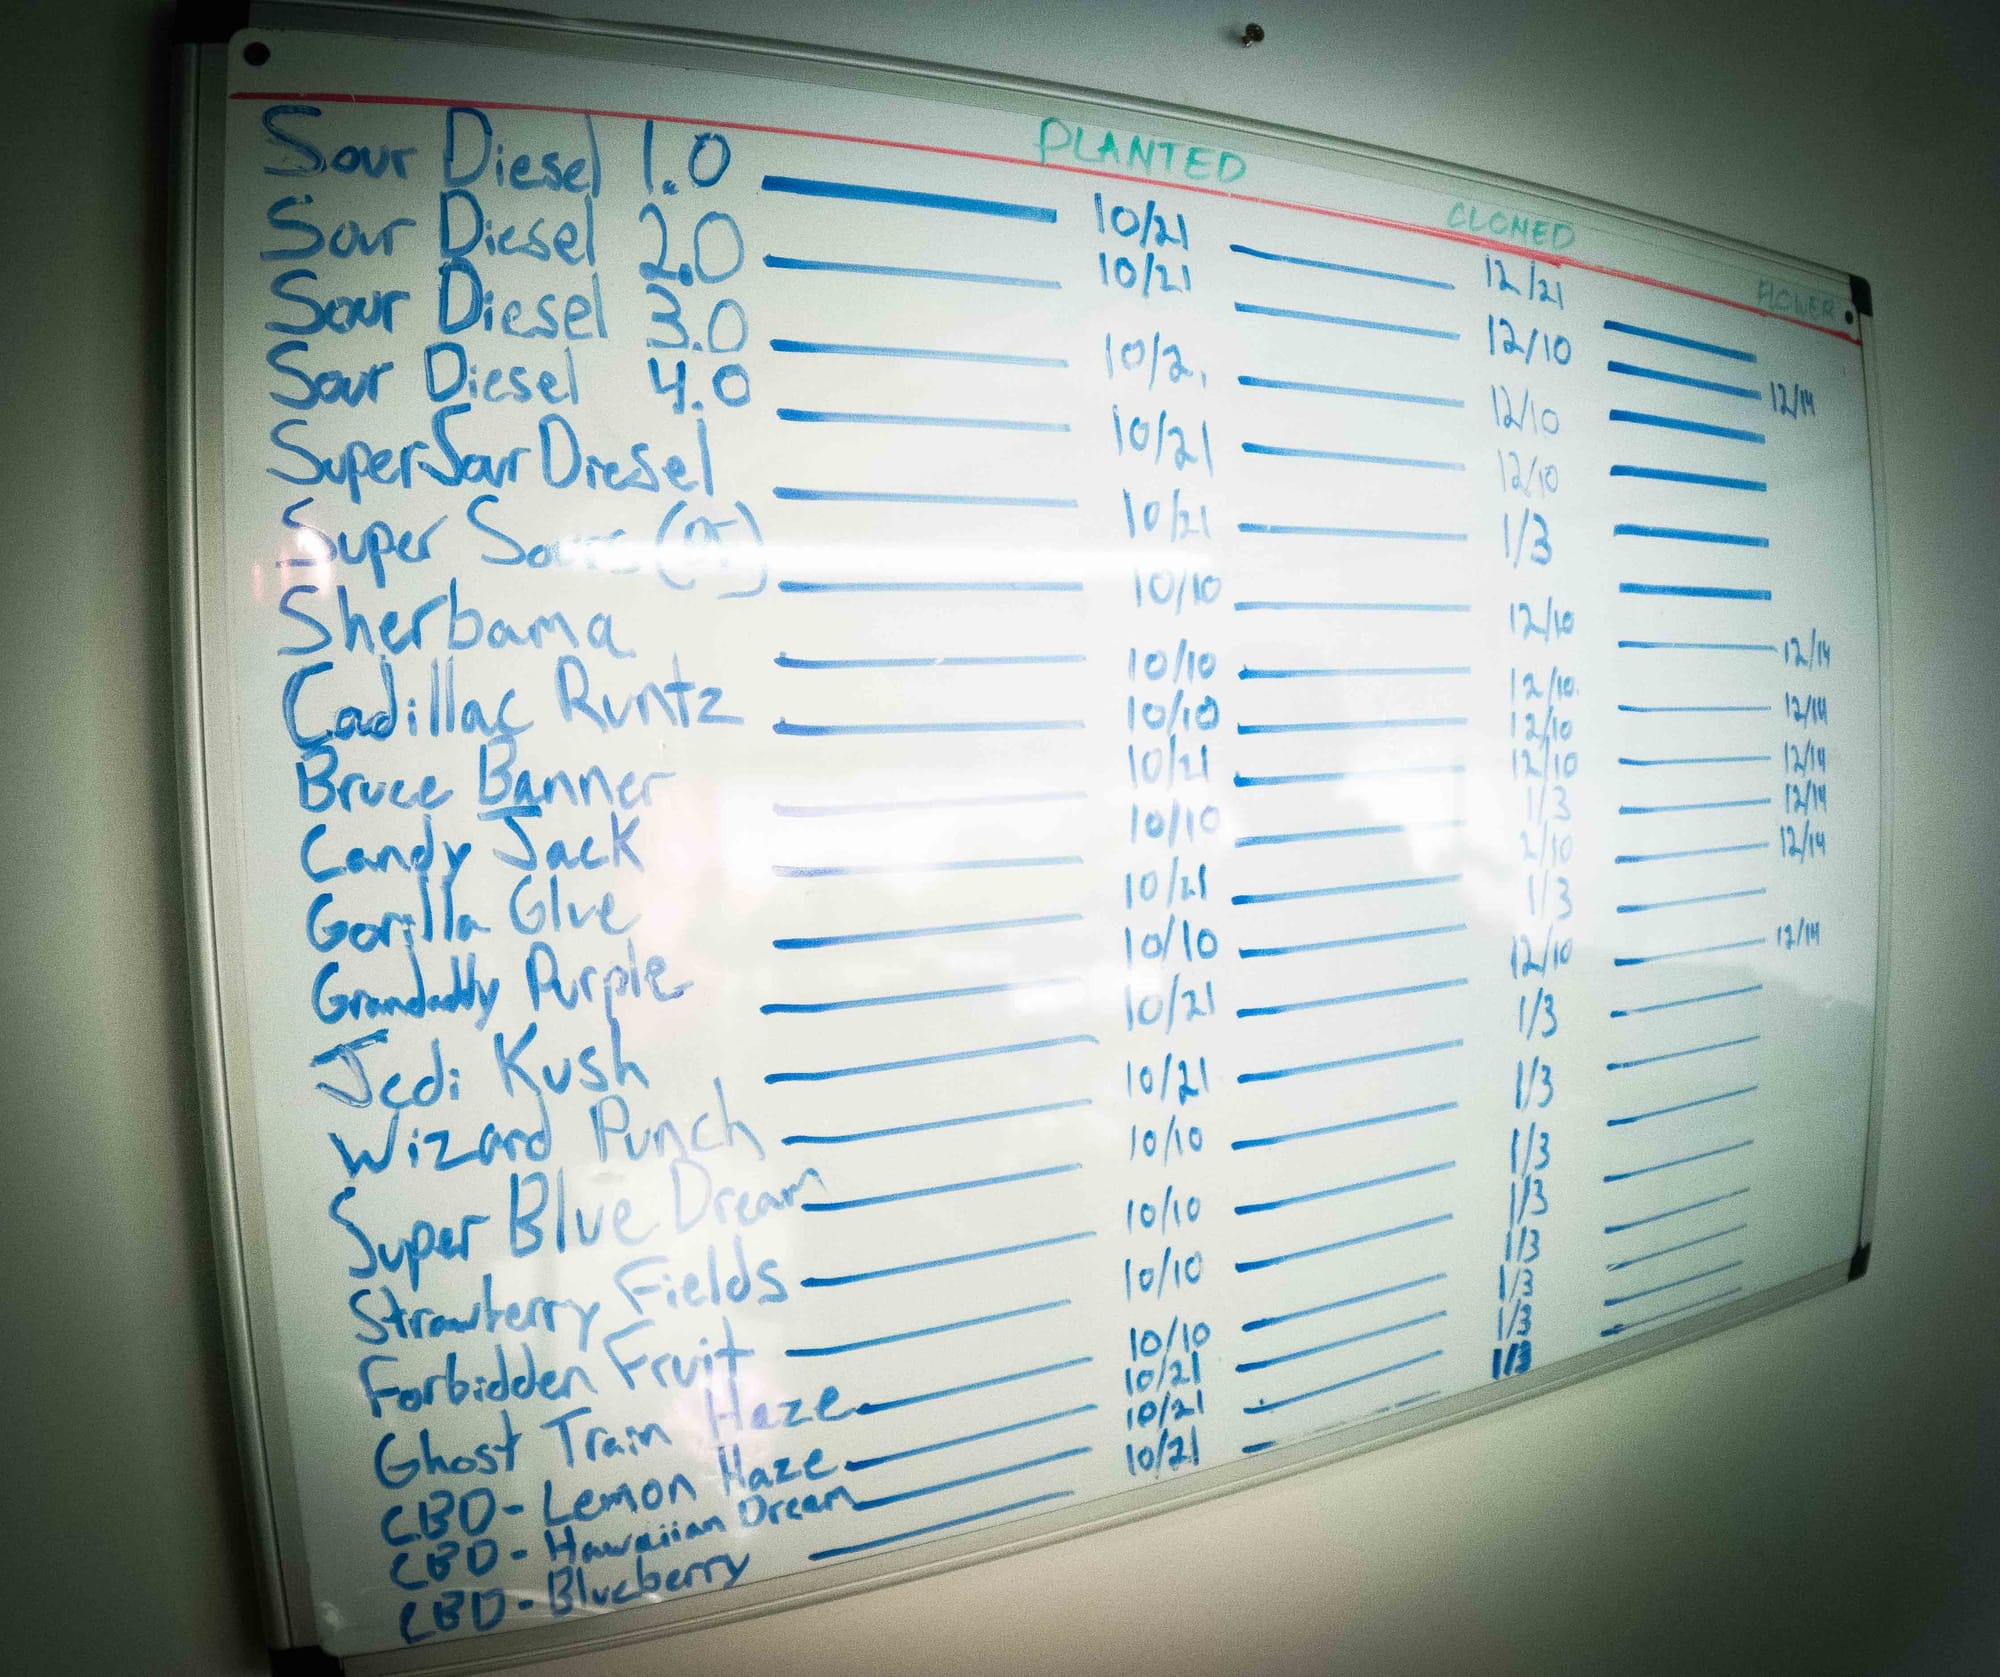 PLANTED CLONED FLOWER
Sour Diesel 1.0 10/21 12/21
Sour Diesel 2.0 10/21 12/10 12/14
Sour Diesel 3.0 12/10
Sour Diesel 4.0 10/21 12/10
SuperSour Diesel 10/21 1/3
Super Sours 10/10 12/10
Sherbama 10/10 12/10 12/14
Cadillac Runtz 10/10 12/10 12/14
Bruce Banner 10/21 12/10 12/14
Candy Jack 10/10 1/3 12/14
Gorilla Glue 10/21 2/10 12/14
Grandaddy Purple 10/10 1/3
Jedi Kush 10/21 12/10 12/14
Wizard Punch 10/21 1/3
Super Blue Dream 10/10 1/3
Strawberry Fields 10/10 1/3
Forbidden Fruit 10/10 1/3
Ghost Train Haze 10/10 1/3
CBD-Lemon Haze 10/21 1/3
CBD-Hawaiian Dream 10/21 1/3
CBD-Blueberry 10/21 1/3